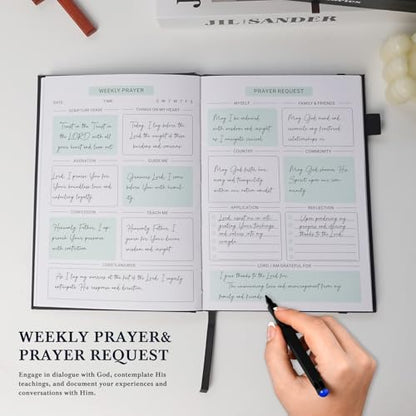 JIL SANDER
WEEKLY PRAYER
DATE
TIME
S M T W T F S
SCRIPTURE VERSE
THINGS ON MY HEART
Trust in the Trust in
the LORD with all
your heart and lean not
Today, I lay before the Lord
the weight of these
burdens and concerns.
ADORATION
GUIDE ME
Lord, I praise You for
Your boundless love and
unfailing loyalty.
Gracious Lord, I come
before You with humil-
ity.
CONFESSION
TEACH ME
Heavenly Father, I ap-
proach Your presence
with contrition.
Heavenly Father, I
yearn for Your divine
wisdom and insight.
LORD'S LANGUAGE
As I lay my worries at the feet of the Lord, I eagerly
anticipate His response and direction.
PRAYER REQUEST
MYSELF
FAMILY & FRIENDS
May I be adorned
with wisdom and insight
as I navigate
May God mend and
reconcile any fractured
relationships in
COUNTRY
COMMUNITY
May God foster har-
mony and tranquility
within our nation amidst
May God shower His
Spirit upon our com-
munity
APPLICATION
REFLECTION
Lord, assist me in inte-
grating Your teachings
and values into my
Upon pondering my
prayers and offering
thanks to the Lord,
LORD I AM GRATEFUL FOR
I give thanks to the Lord for:
The unwavering love and encouragement from my
family and friends
WEEKLY PRAYER&
PRAYER REQUEST
Engage in dialogue with God, contemplate His
teachings, and document your experiences and
conversations with Him.